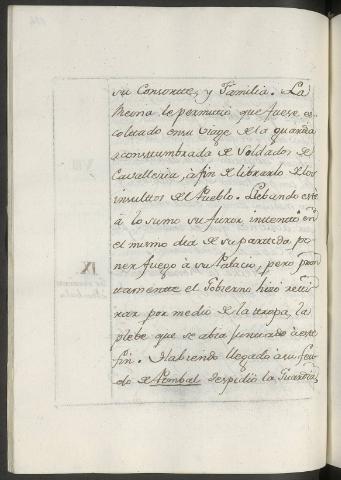 su Consorte, y Familia. La
Reyna le permitió que fuese es
coltado en su viage de la guardia
acostumbrada de Soldados de
Cavalleria, à fin de librarlo de los
insultos del Pueblo. Llebando este
à lo sumo su furor intentó en
el mismo dia de su partida po
ner fuego à su Palacio, pero pron
tamente el Gobierno hizo reti
rar por medio de la tropa, la
plebe que se abia juntado à este
fin. Habiendo llegado à su feu
do de Pombal despidió la Guardia,
IX